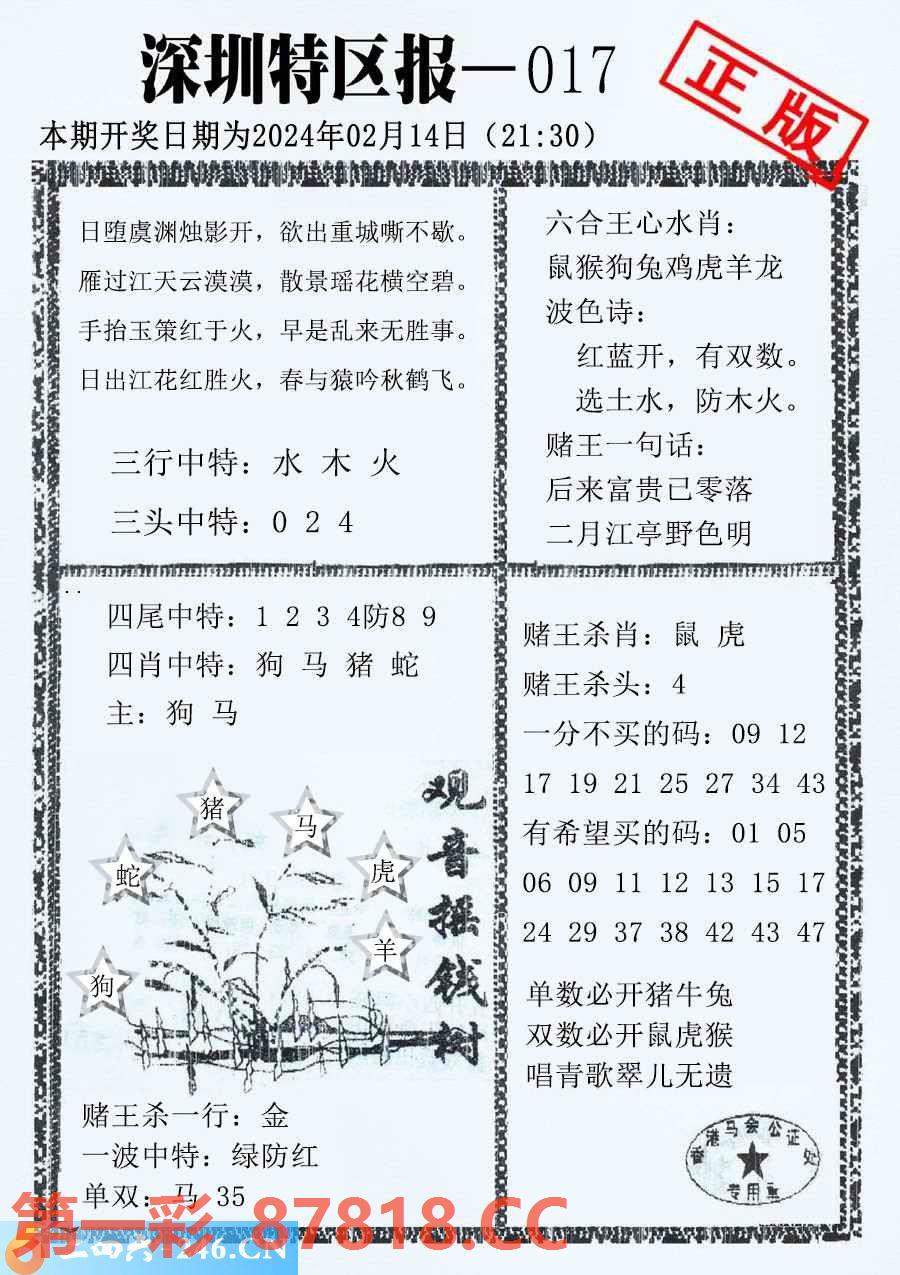 深圳特区报—017
正版
本期开奖日期为2024年02月14日（21:30）
日堕虞渊烛影开，欲出重城嘶不歇。
雁过江天云漠漠，散景瑶花横空碧。
手抬玉策红于火，早是乱来无胜事。
日出江花红胜火，春与猿吟秋鹤飞。
三行中特：水 木 火
三头中特：0 2 4
六合王心水肖：
鼠猴狗兔鸡虎羊龙
波色诗：
红蓝开，有双数。
选土水，防木火。
赌王一句话：
后来富贵已零落
二月江亭野色明
四尾中特：1 2 3 4防8 9
四肖中特：狗 马 猪 蛇
主：狗 马
猪
马
蛇
虎
羊
狗
观音摇钱树
赌王杀一行：金
一波中特：绿防红
单双：马 35
赌王杀肖：鼠 虎
赌王杀头：4
一分不买的码：09 12
17 19 21 25 27 34 43
有希望买的码：01 05
06 09 11 12 13 15 17
24 29 37 38 42 43 47
单数必开猪牛兔
双数必开鼠虎猴
唱青歌翠儿无遗
香港马会公证处
专用章
第一彩 87818.CC
246.CN